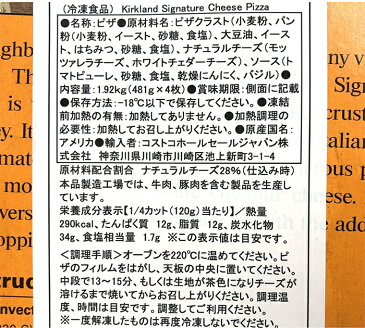 (冷凍食品) Kirkland Signature Cheese Pizza
●名称:ピザ●原材料名:ピザクラスト(小麦粉、パン
粉(小麦粉、イースト、砂糖、食塩)、大豆油、イース
ト、はちみつ、砂糖、食塩)、ナチュラルチーズ(モッ
ツァレラチーズ、ホワイトチェダーチーズ)、ソース(ト
マトピューレ、砂糖、食塩、乾燥にんにく、バジル)●
内容量:1.92kg(481g×4枚)●賞味期限:側面に記載
●保存方法:-18℃以下で保存してください。●凍結
前加熱の有無:加熱してありません。●加熱調理の
必要性:加熱してお召し上がりください。●原産国名:
アメリカ●輸入者:コストコホールセールジャパン株
式会社 神奈川県川崎市川崎区池上新町3-1-4
原材料配合割合 ナチュラルチーズ28%(仕込み時)
本品製造工場では、牛肉、豚肉を含む製品を生産し
ています。
栄養成分表示【1/4カット(120g)当たり】/熱量
290kcal、たんぱく質 12g、脂質 12g、炭水化物
34g、食塩相当量 1.7g ※この表示値は目安です。
<調理手順>オーブンを220℃に温めてください。ピ
ザのフィルムをはがし、天板の中央に置いてください。
中段で13~15分、もしくは生地が茶色になりチーズが
溶けるまで焼いてからお召し上がりください。調理温
度、時間は目安です。調整してご利用ください。
※一度解凍したものは再度冷凍しないでください。